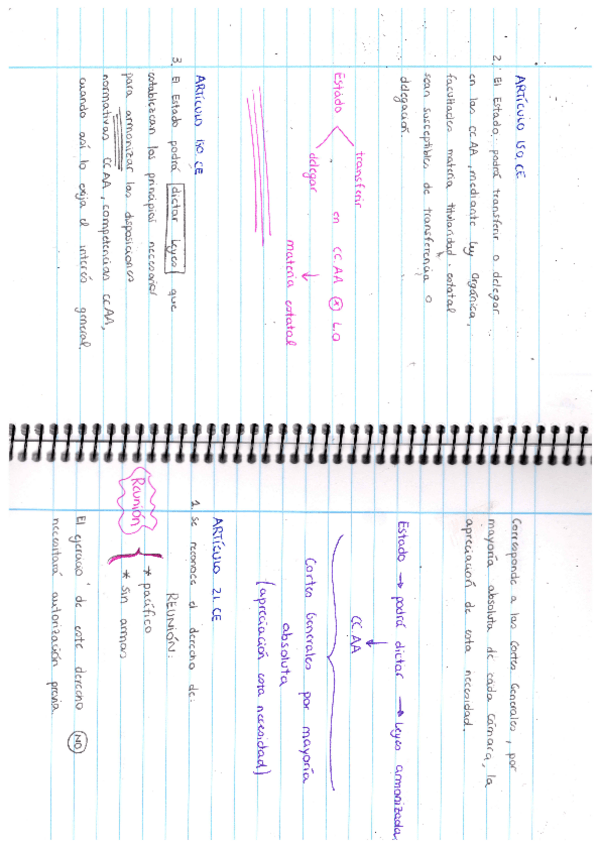 ARTÍCULO 150. CE
2. El Estado podrá transferir o delegar
en las CC AA, mediante ley orgánica,
facultades materia titularidad estatal
sean susceptibles de transferencia o
delegación.
Estado
transferir
delegar
en CC AA
L.O
materia estatal
ARTÍCULO 150. CE
3. El Estado podrá dictar leyes que
establezcan los principios necesarios
para armonizar las disposiciones
normativas CC AA, competencias CC AA,
cuando así lo exija el interés general.
Corresponde a las Cortes Generales, por
mayoría absoluta de cada Cámara, la
apreciación de esta necesidad.
Estado → podrá dictar → leyes armonizadas
↓
CC AA
Cortes Generales por mayoría
absoluta
(apreciación esta necesidad)
ARTÍCULO 21. CE
1. Se reconoce el derecho de:
REUNIÓN:
Reunión
* pacífico
* sin armas
El ejercicio de este derecho NO
necesitará autorización previa.